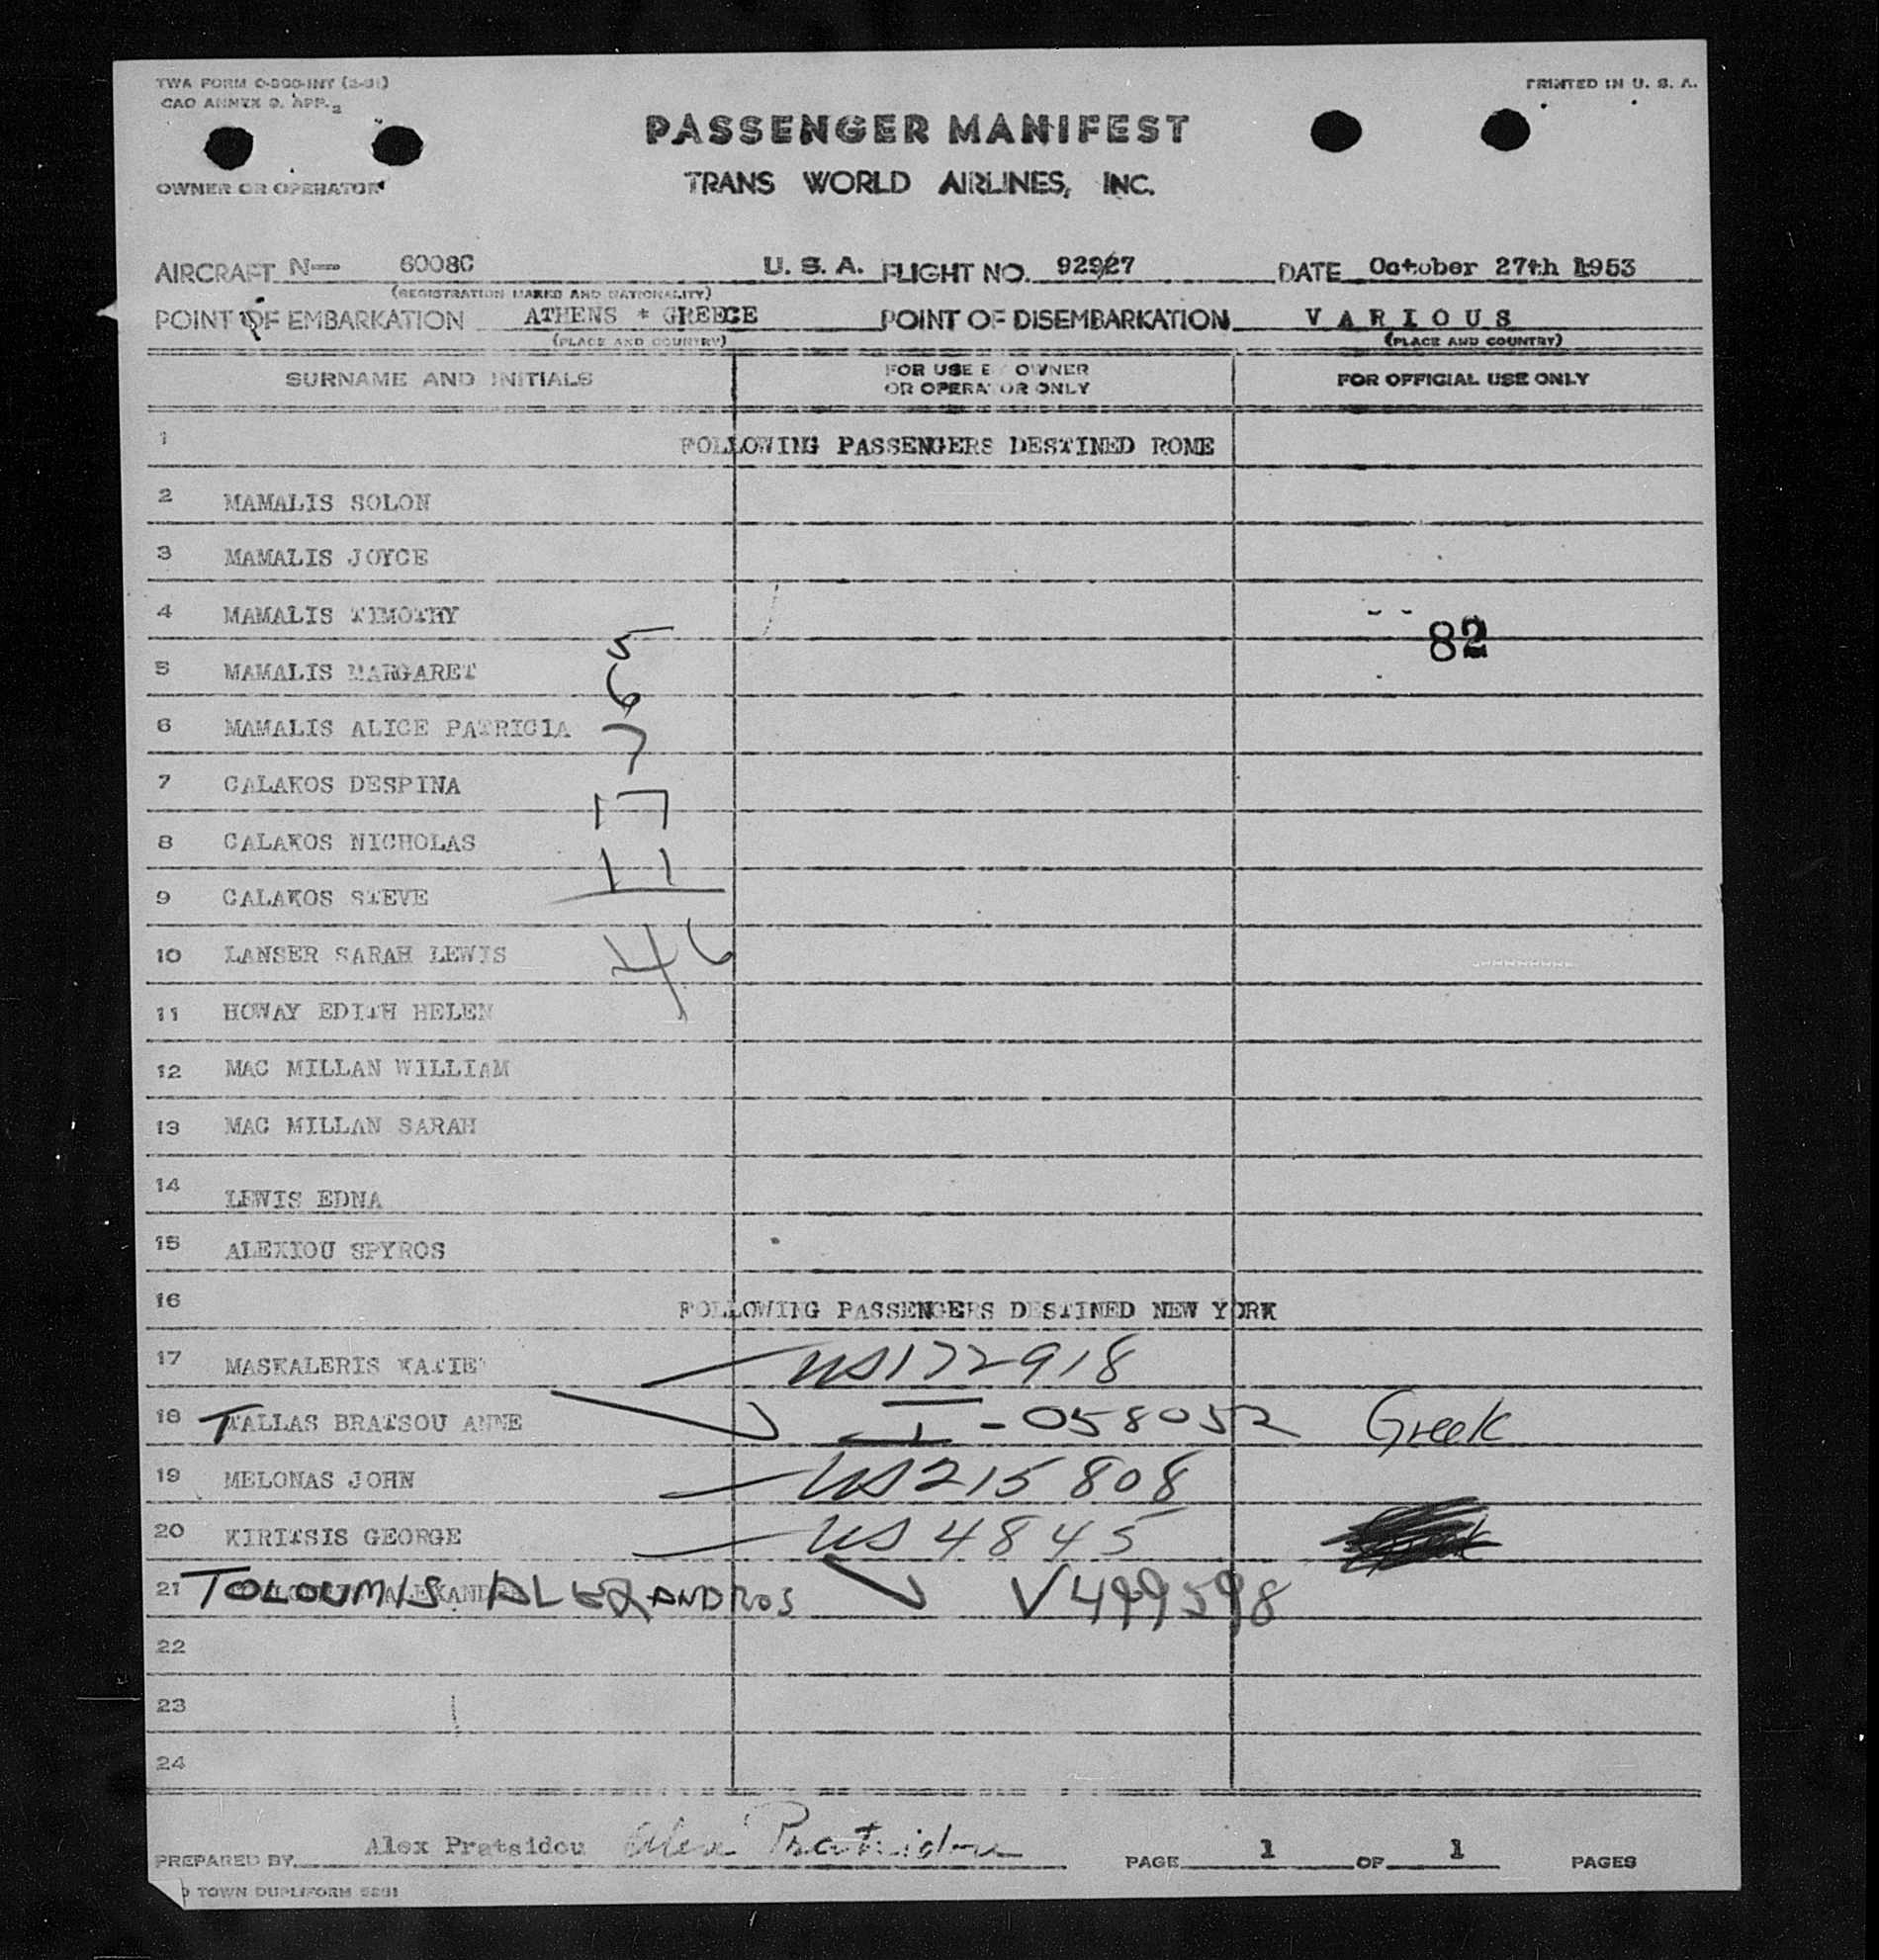 TWA FORM O-500-INT (3-51)
PRINTED IN U. S. A.
CAO ANNEX 9, APP. 2
PASSENGER MANIFEST
OWNER OR OPERATOR
TRANS WORLD AIRLINES, INC.
AIRCRAFT N— 6008C U. S. A. FLIGHT NO. 929/27 DATE October 27th 1953
(REGISTRATION MARKS AND NATIONALITY)
POINT OF EMBARKATION ATHENS * GREECE POINT OF DISEMBARKATION V A R I O U S
(PLACE AND COUNTRY) (PLACE AND COUNTRY)
SURNAME AND INITIALS FOR USE BY OWNER OR OPERATOR ONLY FOR OFFICIAL USE ONLY
1 FOLLOWING PASSENGERS DESTINED ROME
2 MAMALIS SOLON
3 MAMALIS JOYCE
4 MAMALIS TIMOTHY
82
5
5 MAMALIS MARGARET
6
6 MAMALIS ALICE PATRICIA
7
7 CALAKOS DESPINA
17
8 CALAKOS NICHOLAS
11
9 CALAKOS STEVE
46
10 LANSER SARAH LEWIS
11 HOWAY EDITH HELEN
12 MAC MILLAN WILLIAM
13 MAC MILLAN SARAH
14 LEWIS EDNA
15 ALEXIOU SPYROS
16 FOLLOWING PASSENGERS DESTINED NEW YORK
17 MASKALERIS KATIE US172918
18 TALLAS BRATSOU ANNE I-058052 Greek
19 MELONAS JOHN US215808
20 KIRITSIS GEORGE US4845
21 TOLOUMIS ALEXANDROS V499598
22
23
24
PREPARED BY Alex Pratsidou Alex Pratsidou PAGE 1 OF 1 PAGES
TOWN DUPLIFORM 5291